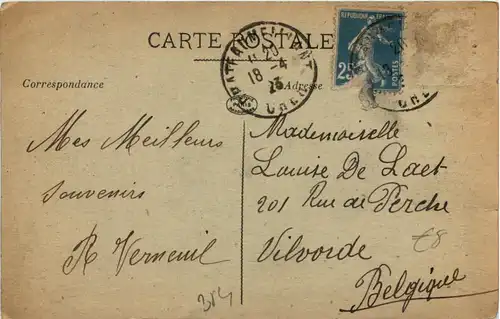 CARTE POSTALE
Correspondance
Adresse
CHATEAUMEILLANT
11 20
18 -4
23
CHER
RÉPUBLIQUE FRANÇAISE
25
POSTES
18
CHER
Mes Meilleurs
Souvenirs
R Verneuil
Mademoiselle
Louise De Laet
201 Rue de Perche
Vilvorde
Belgique
€8